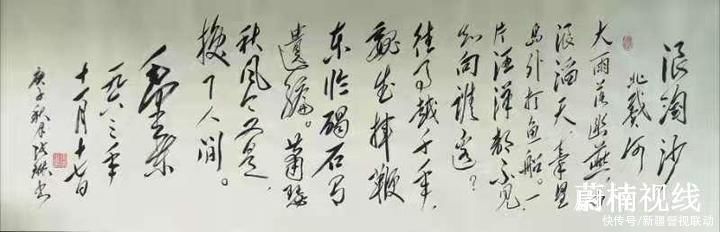 浪淘沙
北戴河
大雨落幽燕,白
浪滔天,秦皇
岛外打鱼船。一
片汪洋都不见,
知向谁边?
往事越千年,
魏武挥鞭
东临碣石有
遗篇。萧瑟
秋风今又是,
换了人间。
毛泽东
一九六三年
十一月十七日
庚子秋月书
蔚楠视线
快传号/新疆警视联动